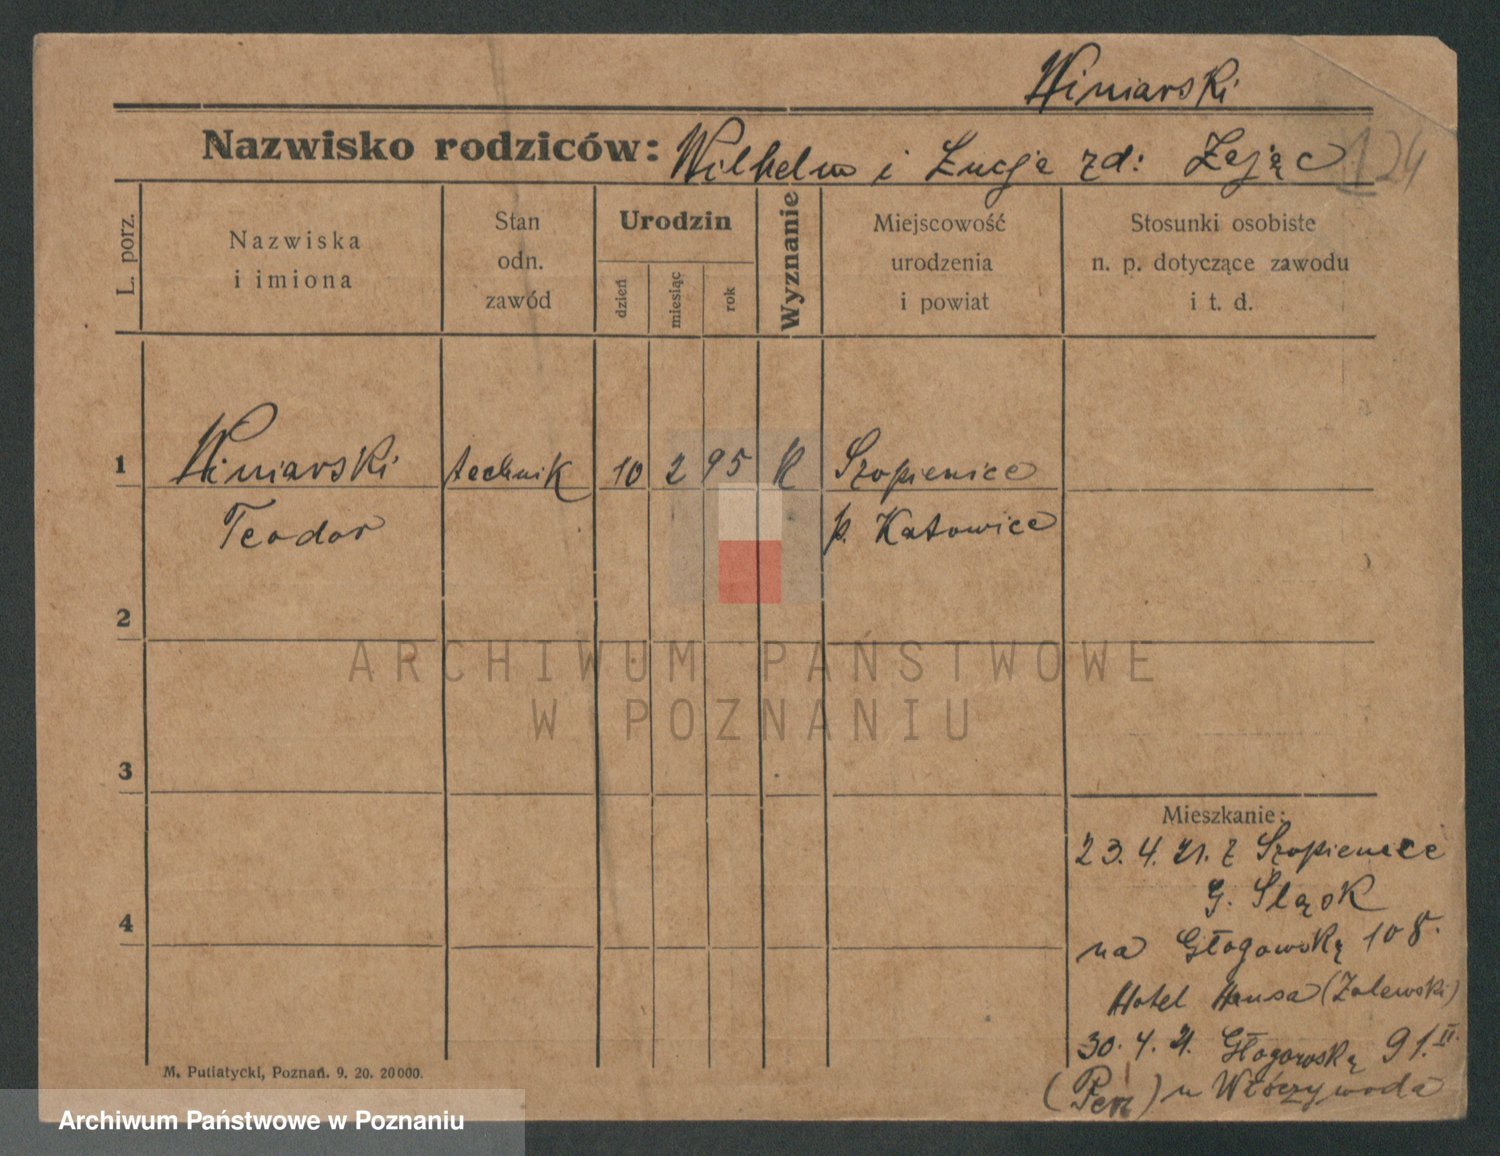 Winiarski
Nazwisko rodziców: Wilhelm i Łucja zd: Zając
124
L. porz.
Nazwiska
i imiona
Stan
odn.
zawód
Urodzin
dzień
miesiąc
rok
Wyznanie
Miejscowość
urodzenia
i powiat
Stosunki osobiste
n. p. dotyczące zawodu
i t. d.
1 Winiarski technik 10 2 95 K Szopienice
Teodor p. Katowice
2
ARCHIWUM PAŃSTWOWE
W POZNANIU
3
Mieszkanie:
23. 4. 21. z Szopienice
G. Śląsk
4
na Głogowską 108.
Hotel Hansa (Zalewski)
30. 4. 21. Głogowską 91. II.
u Włóczywoda
M. Putiatycki, Poznań. 9. 20. 20000.
Archiwum Państwowe w Poznaniu